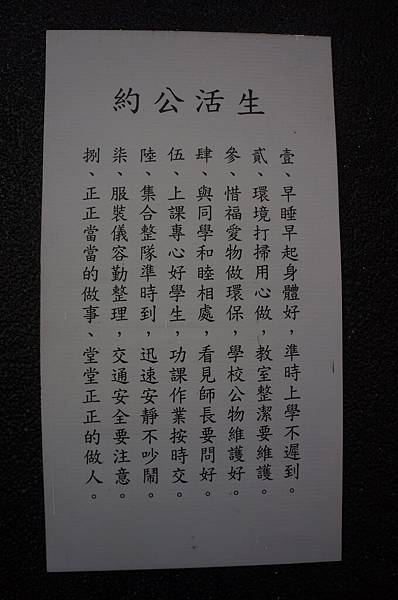 生活公約
壹、早睡早起身體好，準時上學不遲到。
貳、環境打掃用心做，教室整潔要維護。
參、惜福愛物做環保，學校公物維護好。
肆、與同學和睦相處，看見師長要問好。
伍、上課專心好學生，功課作業按時交。
陸、集合整隊準時到，迅速安靜不吵鬧。
柒、服裝儀容勤整理，交通安全要注意。
捌、正正當當的做事、堂堂正正的做人。